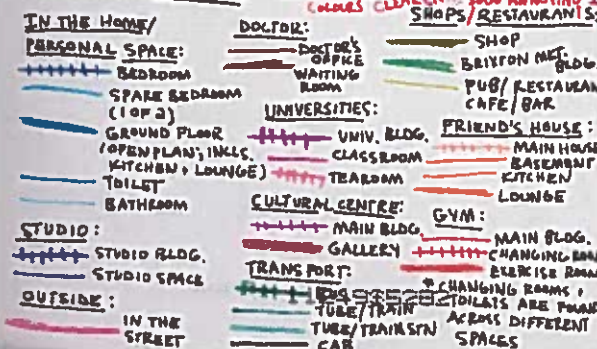 COLOURS
IN THE HOME/
PERSONAL SPACE:
BEDROOM
SPARE BEDROOM
(1 OF 2)
GROUND FLOOR
(OPEN PLAN; INCLS.
KITCHEN + LOUNGE)
TOILET
BATHROOM
STUDIO:
STUDIO BLDG.
STUDIO SPACE
OUTSIDE:
IN THE
STREET
DOCTOR:
DOCTOR'S
OFFICE
WAITING
ROOM
UNIVERSITIES:
UNIV. BLDG.
CLASSROOM
TEAROOM
CULTURAL CENTRE:
MAIN BLDG.
GALLERY
TRANSPORT:
TUBE/TRAIN
TUBE/TRAIN STN
CAR
SHOPS/RESTAURANTS
SHOP
BRIXTON MKT. BLDG.
PUB/RESTAURAN
CAFE/BAR
FRIEND'S HOUSE:
MAIN HOUSE
BASEMENT
KITCHEN
LOUNGE
GYM:
MAIN BLDG.
CHANGING ROOM
EXERCISE ROOM
* CHANGING ROOMS +
TOILETS ARE FOUND
ACROSS DIFFERENT
SPACES